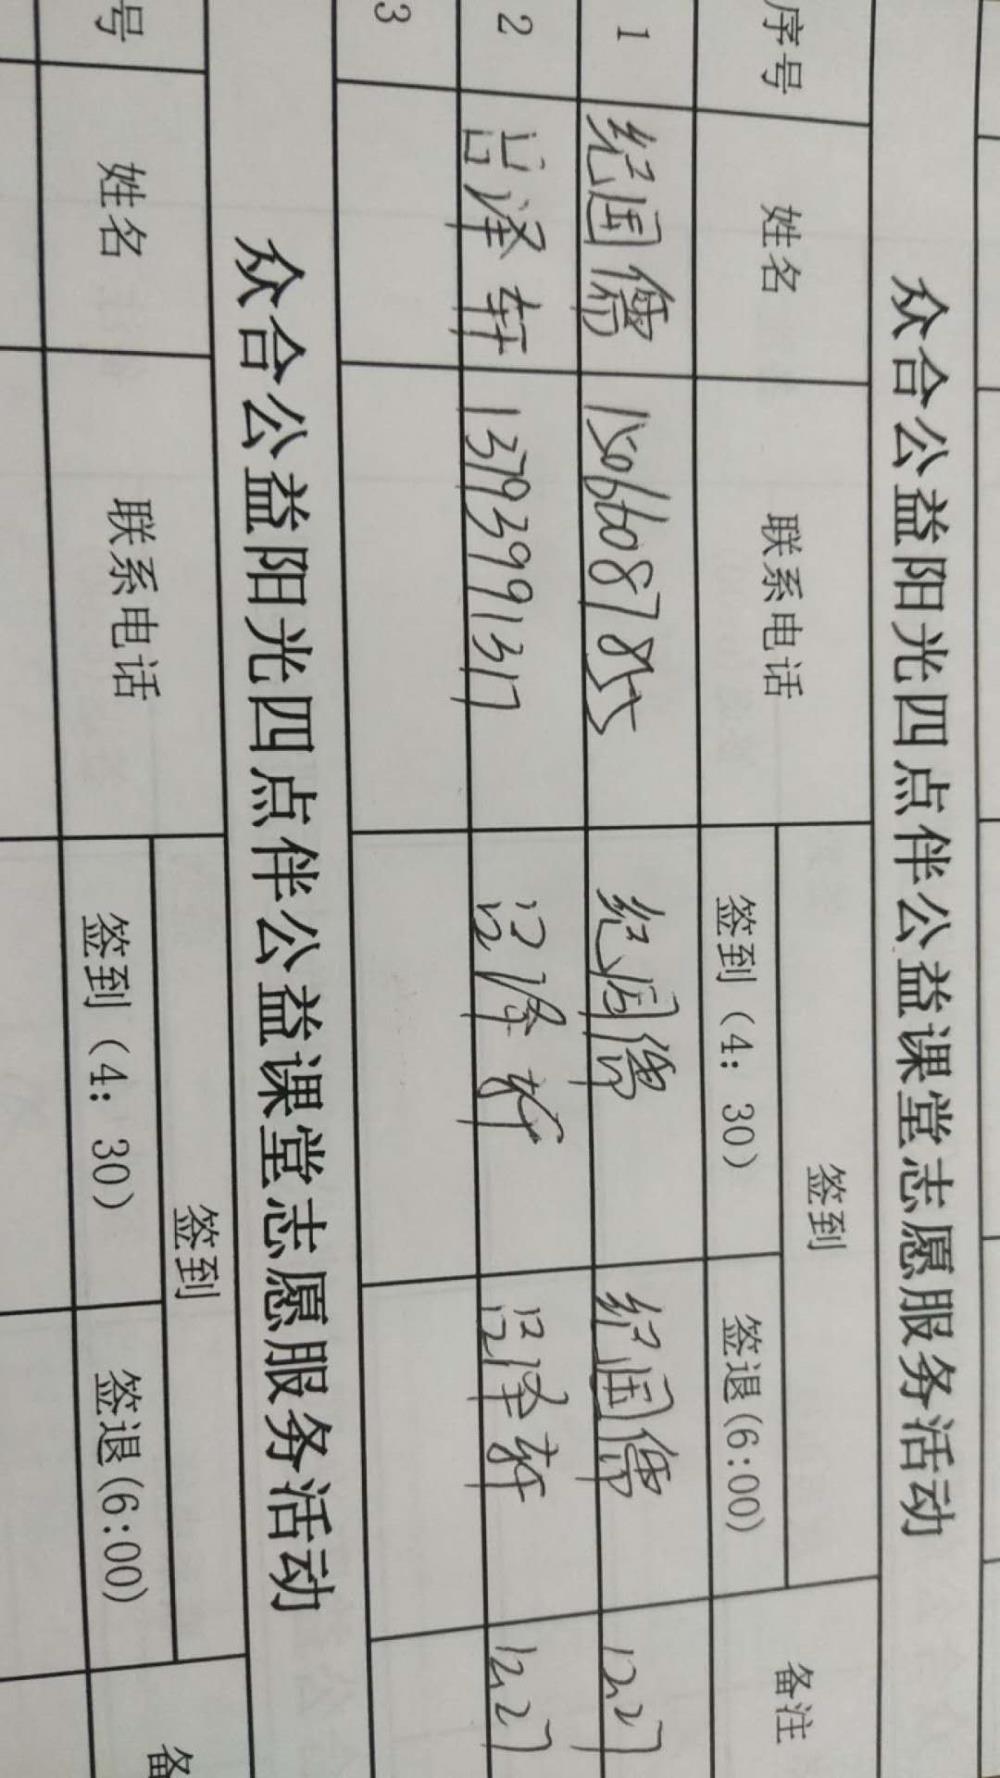 众合公益阳光四点伴公益课堂志愿服务活动
序号 姓名 联系电话 签到 备注
签到（4：30） 签退(6:00)
1 纪国儒 15066087855 纪国儒 纪国儒 12.27
2 吕泽轩 13793991317 吕泽轩 吕泽轩 12.27
3
众合公益阳光四点伴公益课堂志愿服务活动
号 姓名 联系电话 签到 备
签到（4：30） 签退(6:00)